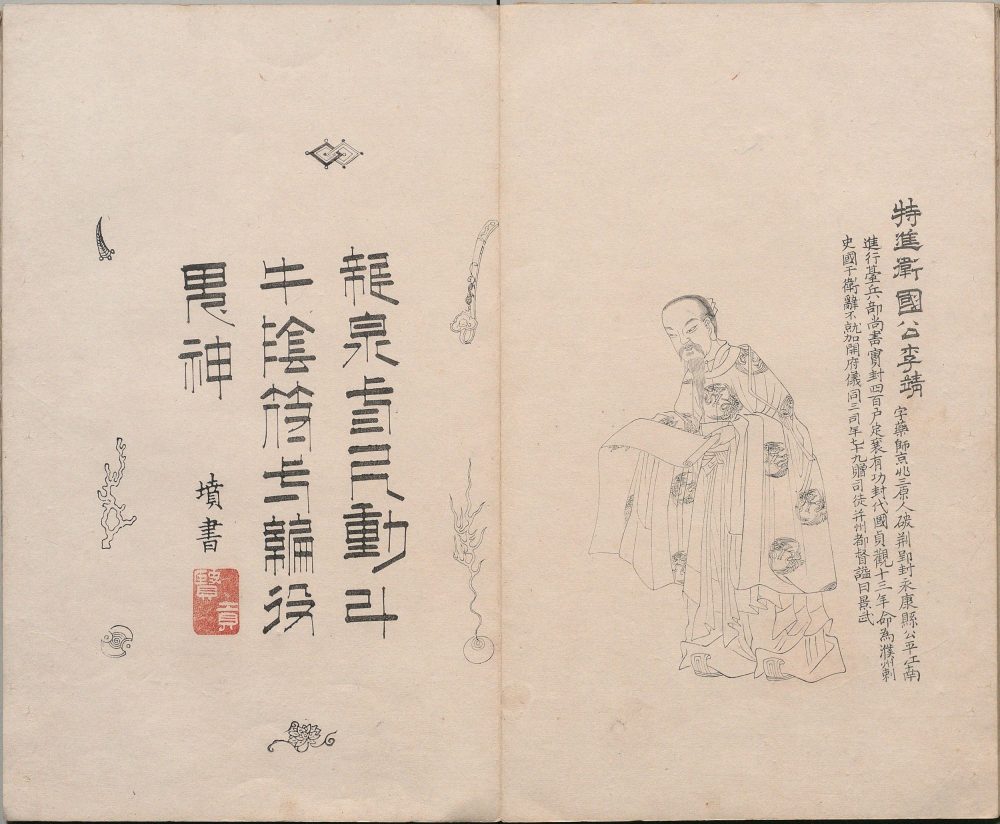 特進衛國公李靖
字藥師京兆三原人破荆郢封永康縣公平江南
進行臺兵部尚書實封四百户定襄有功封代國貞觀十三年命為濮州刺
史國于衛辭不就加開府儀同三司年七十九贈司徒并州都督謚曰景武
龍泉三尺動斗
牛陰符一卷輪役
鬼神
墳書